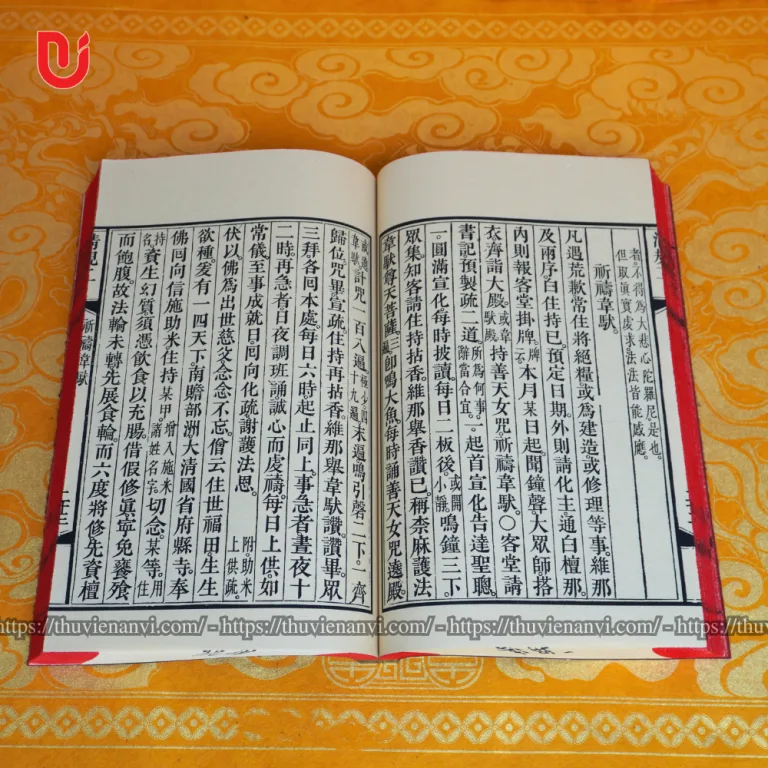 者不得為大悲心陀羅尼是也。
但取真實處求法法皆能感應。
祈禱韋馱。
凡遇荒歉常住將絕糧或為建造或修理等事。維那
及兩序白住持已。預定日期。外則請化主。通白檀那。
內則報客堂掛牌。牌云本月某日起。聞鐘聲大眾師搭
衣齊詣大殿。或韋馱殿。持善天女咒。祈禱韋馱。〇客堂請
書記預製疏二道。所為何事。辭當合宜。一起首宣化告達聖聰。
一圓滿宣化每時披讀。每日二板後。或開小靜。鳴鐘三下。
眾集。知客請住持拈香。維那舉香讚已。稱柰麻護法
韋馱尊天菩薩。三遍。即鳴大魚。每時誦善天女咒遶殿。
或遶韋馱。計咒一百八遍。極少四十九遍。末遍鳴引磬二下。一齊
歸位。咒畢宣疏。住持再拈香。維那舉韋馱讚。讚畢。眾
三拜。各回本處。每日六時。起止同上。事急者晝夜十
二時。再急者日夜調班。誦誠心而虔禱。每日上供。如
常儀。至事成就日。回向化疏。謝護法恩。附。助米上供疏。
伏以佛為出世慈父念念不忘。僧云住世福田生生
欲種。爰有一四天下。南贍部洲大清國省府縣寺。奉
佛回向信施助米住持某甲。增入施米諸姓名字。切念某等。用
持名。資生幻質須憑飲食以充腸。借假修真寧免饔飧
而飽腹。故法輪未轉先展食輪。而六度將修先資檀
清規一
祈禱韋馱
https://thuvienanvi.com/ - https://thuvienanvi.com/ - https://thuvienanvi.com/ - https://thuvienanvi.com/